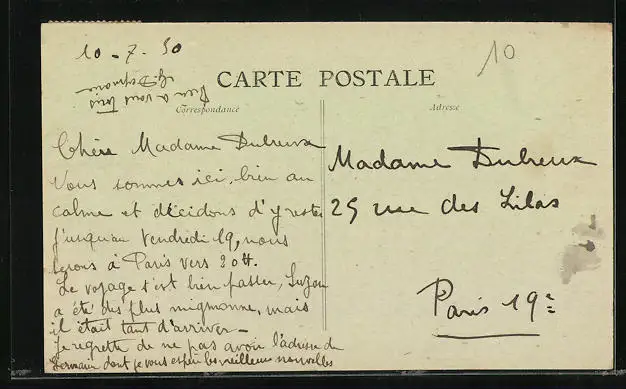 10-7-30
10
CARTE POSTALE
Correspondance
Adresse
Bien à vous tous
Chère Madame Dubreux
Vous sommes ici, bien au
calme et décidons d'y rester
jusqu'au Vendredi 19, nous
serons à Paris vers 20H.
Le voyage s'est bien passer, Suzon
a été des plus mignonne, mais
il était tant d'arriver -
Je regrette de ne pas avoir l'adresse de
Germain dont je vous espère les meilleures nouvelles
Madame Dubreux
25 rue des Lilas
Paris 19e